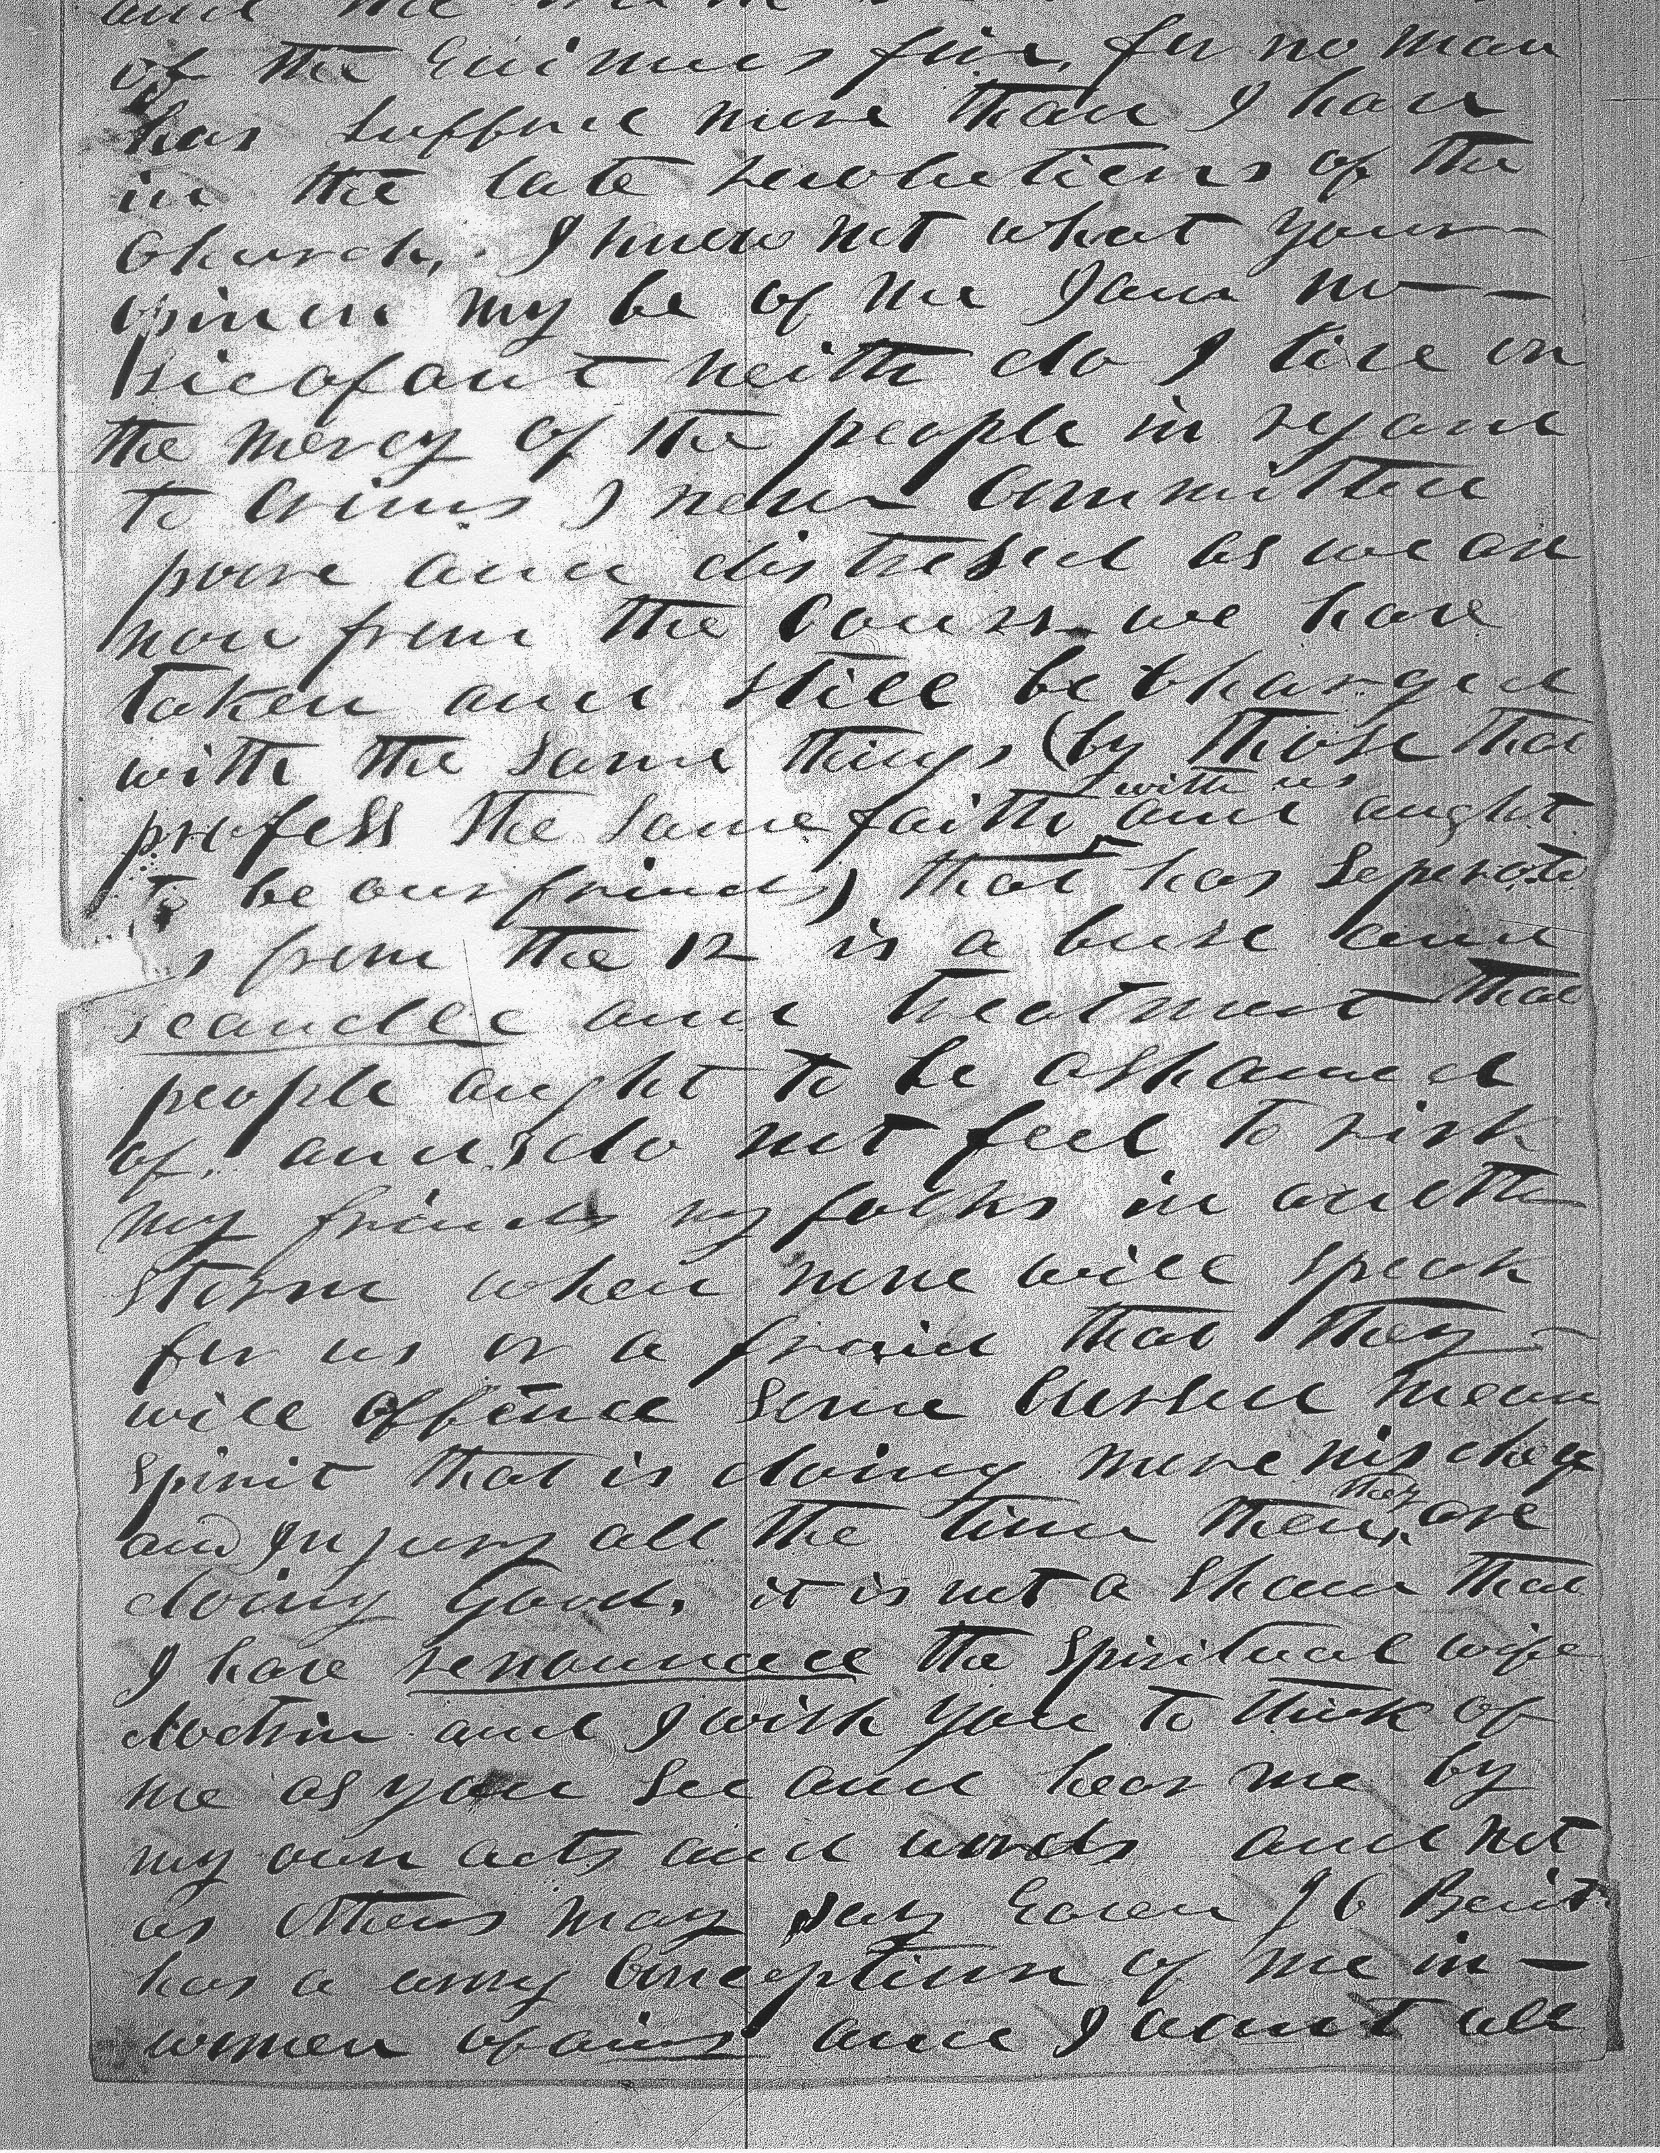 of the Guinnes fire, for no man
has suffred more than I have
in the late revolutions of the
Church, I know not what your
opinion my be of me I am no
sicofant neith do I live on
the mercy of the people in regard
to Crimes I never Committed
poore and distressed as we are
now from the Course we have
taken and still be Charged
with the same things (by those that
profess the same faith with us and aught
to be our friends) that has seperate
s from the 12 is a burse and
scandle and treatment that
people aught to be ashamed
of, and do not feel to risk
my friends my folks in anoth
storm when none will speak
for us or a fraid that they
will offend some bursed mean
spirit that is doing more mischeg
and Injury all the time then they are
doing Good. it is not a sham that
I have renounced the spiritual wife
doctrin and I wish you to think of
me as you see and hear me by
my own acts and words and not
as others may say Eaven J C Benit
has a rong Conception of me in
women ofairs and I want all